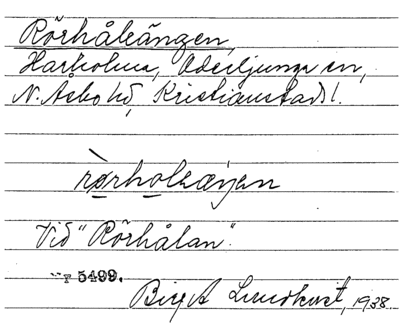 Rörhåleängen,
Harholma, Oderljunga sn,
N. Åsbo hd, Kristianstads l.
rørholeæŋen
Vid "Rörhålan".
F 5499.
Birgit Lundkvist, 1938.